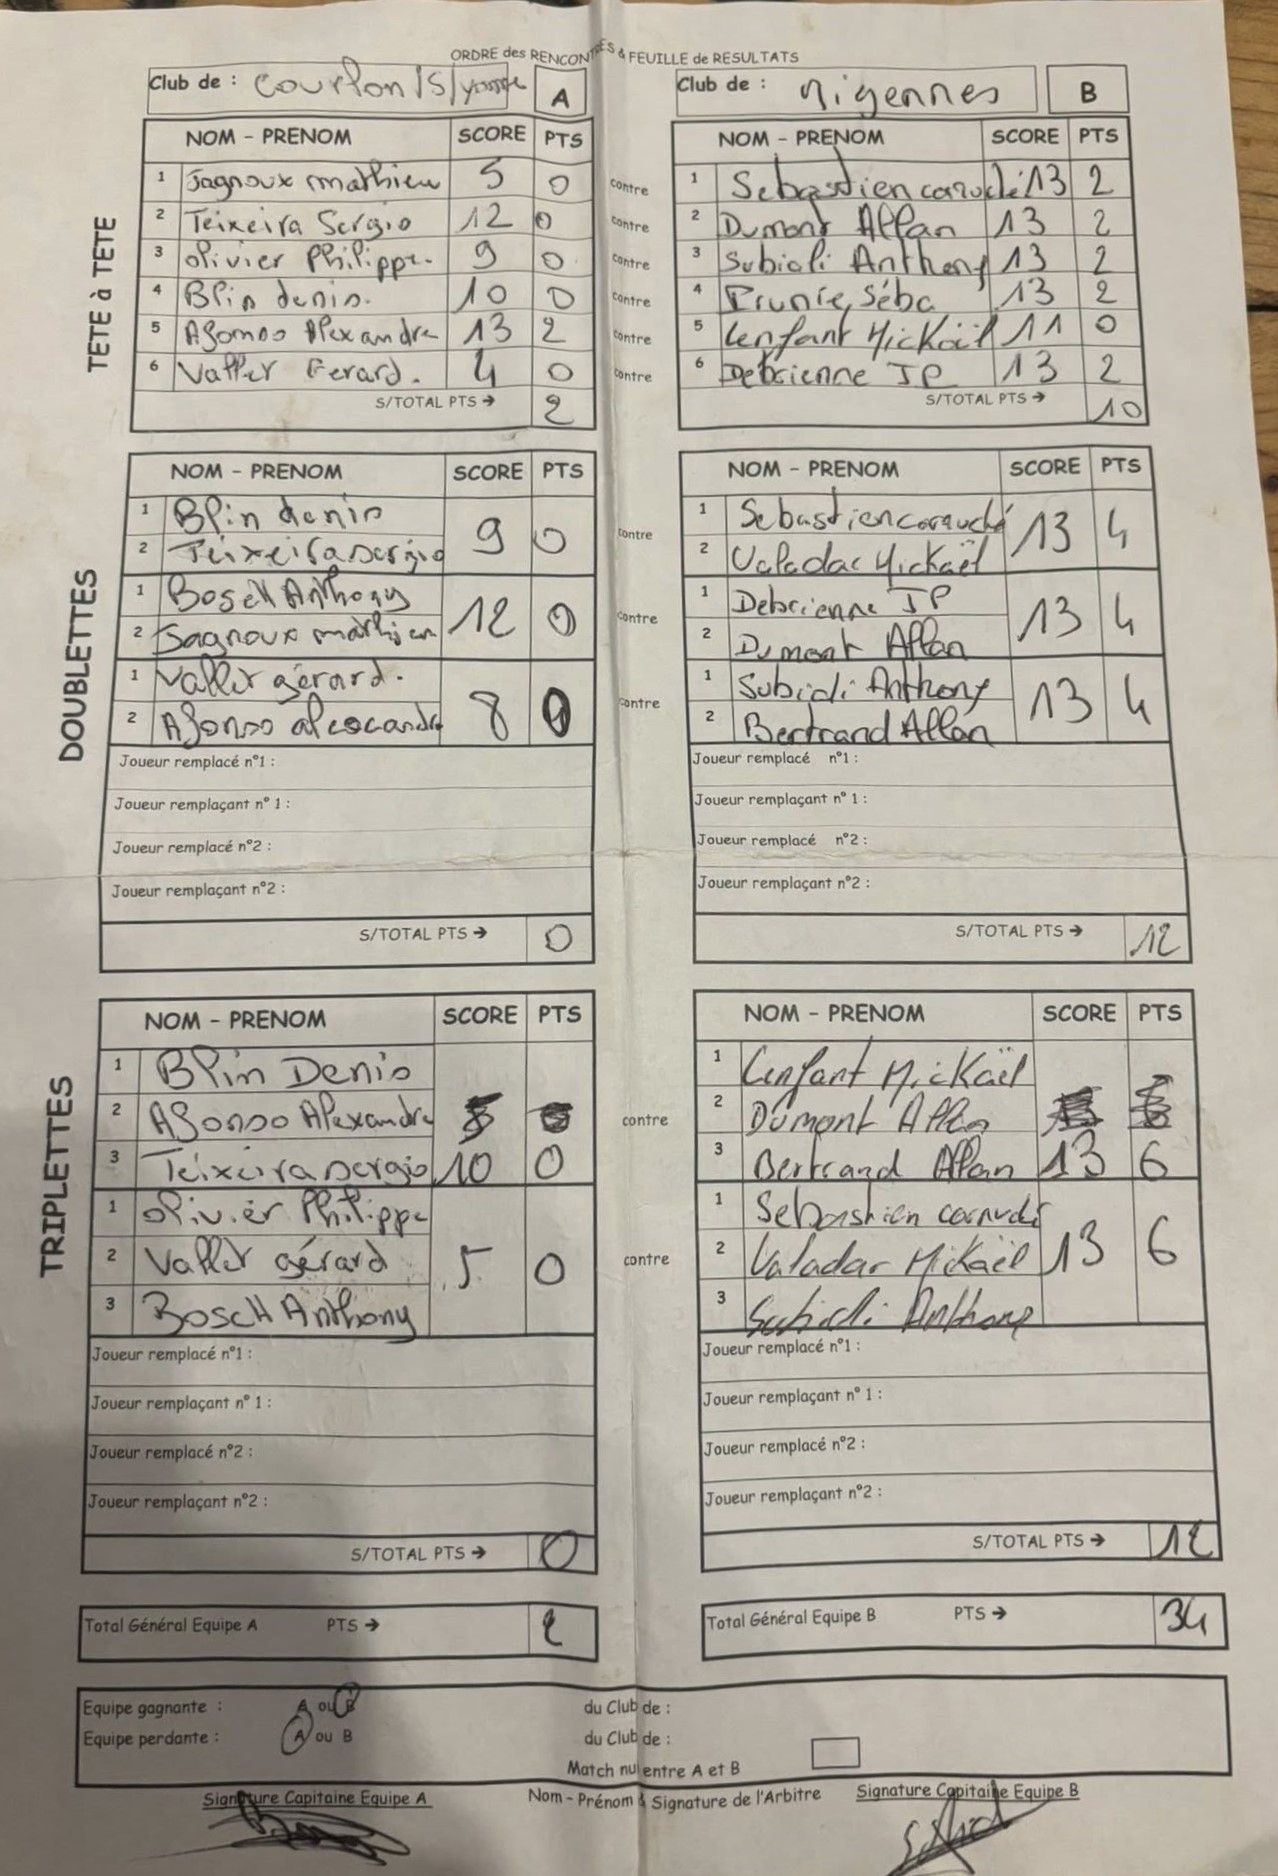 ORDRE des RENCONTRES & FEUILLE de RESULTATS
Club de : Courlon/S/yonne A
Club de : Migennes B
NOM - PRENOM SCORE PTS
NOM - PRENOM SCORE PTS
TETE à TETE
1 Jagnoux mathieu 5 0 contre 1 Sebastien caruché 13 2
2 Teixeira Sergio 12 0 contre 2 Dumont Allan 13 2
3 Olivier Philippe. 9 0 contre 3 Subioli Anthony 13 2
4 Blin denis. 10 0 contre 4 Prunie, Séba 13 2
5 Afonso Alexandre 13 2 contre 5 Lenfant Mickaël 11 0
6 Vallet Gerard. 4 0 contre 6 Debrienne JP 13 2
S/TOTAL PTS → 2
S/TOTAL PTS → 10
DOUBLETTES
NOM - PRENOM SCORE PTS
NOM - PRENOM SCORE PTS
1 Blin denis 9 0 contre 1 Sebastien caruché 13 4
2 Teixeira sergio 2 Valadar Mickaël
1 Bosch Anthony 12 0 contre 1 Debrienne JP 13 4
2 Jagnoux mathieu 2 Dumont Allan
1 Vallet gérard. 8 0 contre 1 Subioli Anthony 13 4
2 Afonso alexandre 2 Bertrand Allan
Joueur remplacé n°1 :
Joueur remplacé n°1 :
Joueur remplaçant n° 1 :
Joueur remplaçant n° 1 :
Joueur remplacé n°2 :
Joueur remplacé n°2 :
Joueur remplaçant n°2 :
Joueur remplaçant n°2 :
S/TOTAL PTS → 0
S/TOTAL PTS → 12
TRIPLETTES
NOM - PRENOM SCORE PTS
NOM - PRENOM SCORE PTS
1 Blin Denis 1 Lenfant Mickaël
2 Afonso Alexandre contre 2 Dumont Allan
3 Teixeira sergio 10 0 3 Bertrand Allan 13 6
1 Olivier Philippe 1 Sebastien
2 Vallet gérard 5 0 contre 2 Valadar Mickaël 13 6
3 Bosch Anthony 3 Subioli Anthony
Joueur remplacé n°1 :
Joueur remplacé n°1 :
Joueur remplaçant n° 1 :
Joueur remplaçant n° 1 :
Joueur remplacé n°2 :
Joueur remplacé n°2 :
Joueur remplaçant n°2 :
Joueur remplaçant n°2 :
S/TOTAL PTS → 0
S/TOTAL PTS → 12
Total Général Equipe A PTS → 2
Total Général Equipe B PTS → 34
Equipe gagnante : A ou B du Club de :
Equipe perdante : A ou B du Club de :
Match nul entre A et B
Signature Capitaine Equipe A
Nom - Prénom & Signature de l'Arbitre
Signature Capitaine Equipe B